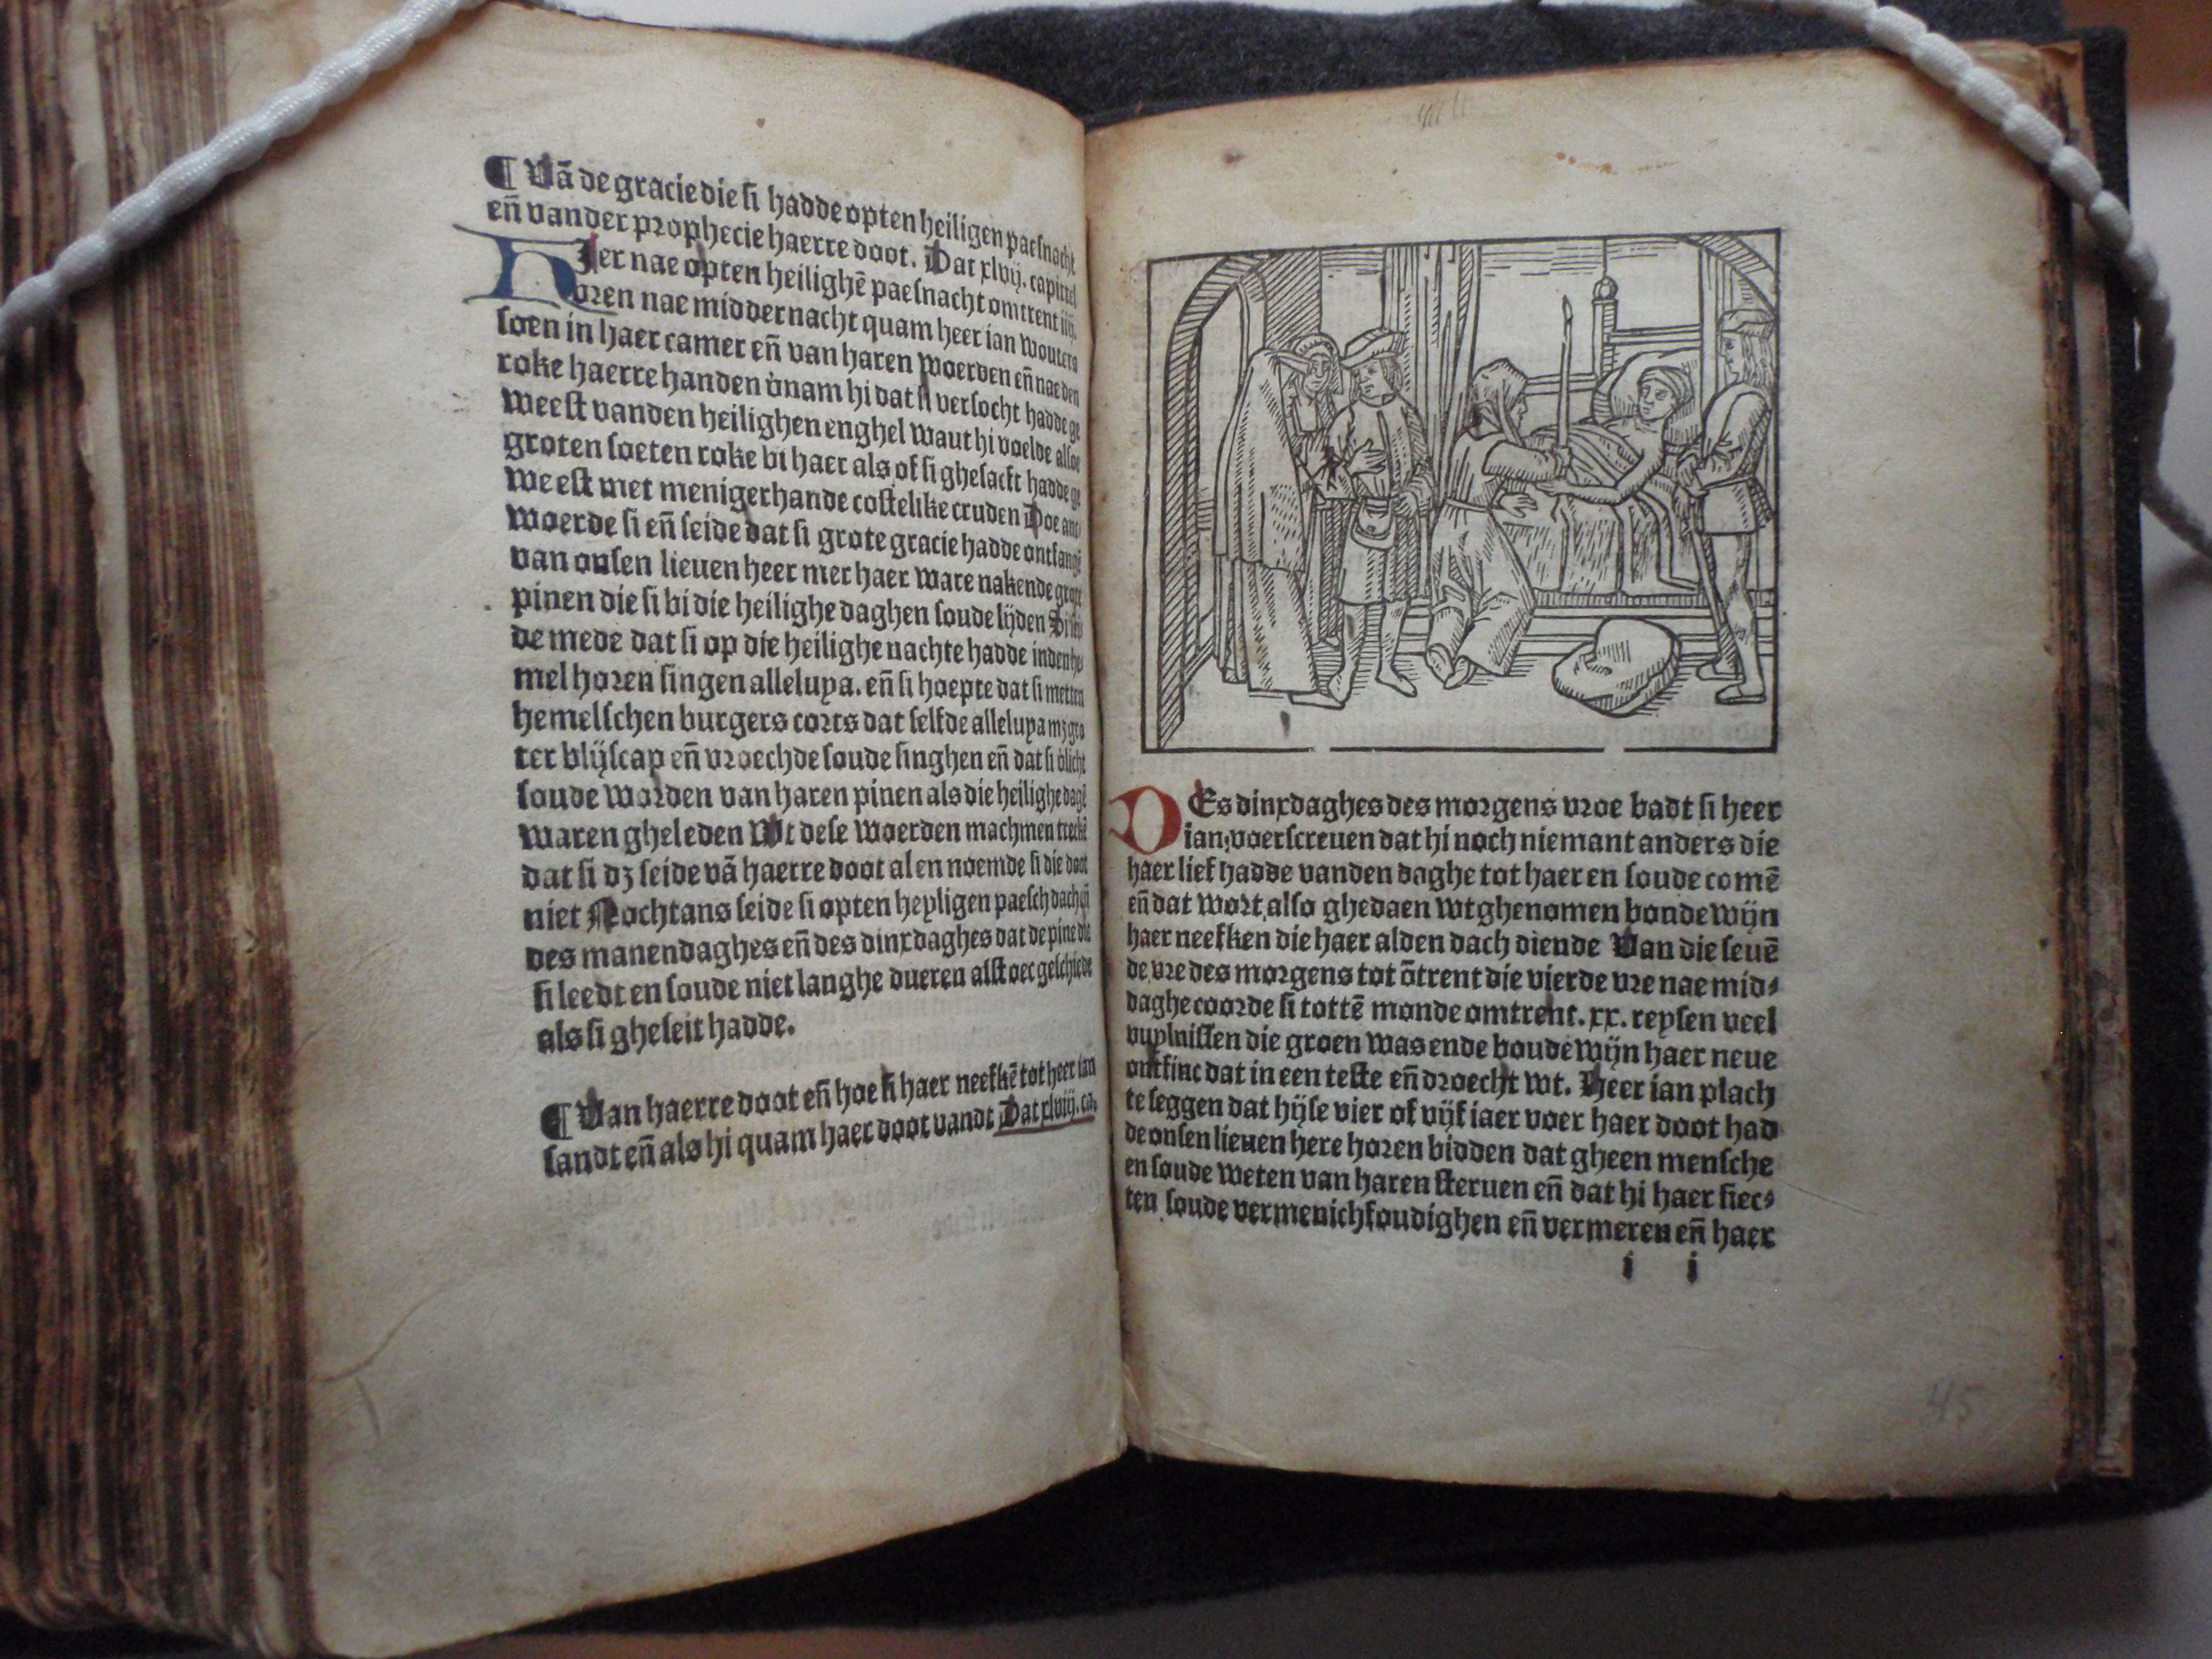 ¶ Vā de gracie die si hadde opten heiligen paesnacht
en̄ vander prophecie haerre doot. Dat xlvij. capittel
HIer nae opten heilighē paesnacht omtrent iiij.
vren nae middernacht quam heer ian wouters
soen in haer camer en̄ van haren woerden en̄ nae den
roke haerre handen v̄nam hi dat si versocht hadde ge
weest vanden heilighen enghel waut hi voelde alsoe
groten soeten roke bi haer als of si ghesackt hadde ge
weest met menigerhande costelike cruden Doe ant
woerde si en̄ seide dat si grote gracie hadde ontfangē
van onsen lieuen heer mer haer ware nakende grote
pinen die si bi die heilighe daghen soude lijden Si sei
de mede dat si op die heilighe nachte hadde inden he
mel horen singen alleluya. en̄ si hoepte dat si metten
hemelschen burgers corts dat selfde alleluya mz gro
ter blijscap en̄ vroechde soude singhen en̄ dat si v̄licht
soude worden van haren pinen als die heilighe dagē
waren gheleden Wt dese woerden machmen treckē
dat si dz seide vā haerre doot al en noemde si die doot
niet Nochtans seide si opten heyligen paesch dach en̄
des manendaghes en̄ des dinxdaghes dat de pine die
si leedt en soude niet langhe dueren alst oec geschiede
als si gheseit hadde.
¶ Van haerre doot en̄ hoe si haer neefkē tot heer ian
sandt en̄ als hi quam haer doot vandt Dat xlviij. ca.
DEs dinxdaghes des morgens vroe badt si heer
ian voerscreuen dat hi noch niemant anders die
haer lief hadde vanden daghe tot haer en soude comē
en̄ dat wort also ghedaen wtghenomen bondewijn
haer neefken die haer alden dach diende Van die seuē
de vre des morgens tot ōtrent die vierde vre nae mid⸗
daghe coorde si tottē monde omtrent. xx. reysen veel
vuylnissen die groen was ende boudewijn haer neue
ontfinc dat in een teste en̄ droecht wt. Heer ian plach
te seggen dat hijse vier of vijf iaer voer haer doot had
de onsen lieuen here horen bidden dat gheen mensche
en soude weten van haren steruen en̄ dat hi haer siec⸗
ten soude vermenichfoudighen en̄ vermeren en̄ haer
i i
45